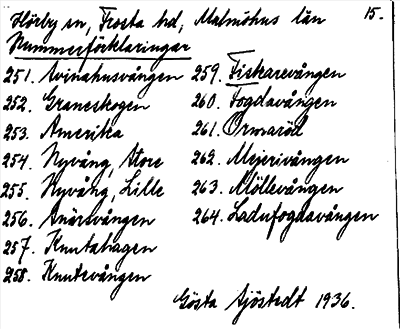 Hörby sn, Frosta hd, Malmöhus län 15.
Nummerförklaringar
251. Svinahusvången
252. Graneskogen
253. Amerika
254. Nyvång, Store
255. Nyvång, Lille
256. Snärsvången
257. Knutahagen
258. Knutevången
259. Fiskarevången
260. Fogdavången
261. Ormaröd
262. Mejerivången
263. Möllevången
264. Ladufogdavången
Gösta Sjöstedt 1936.